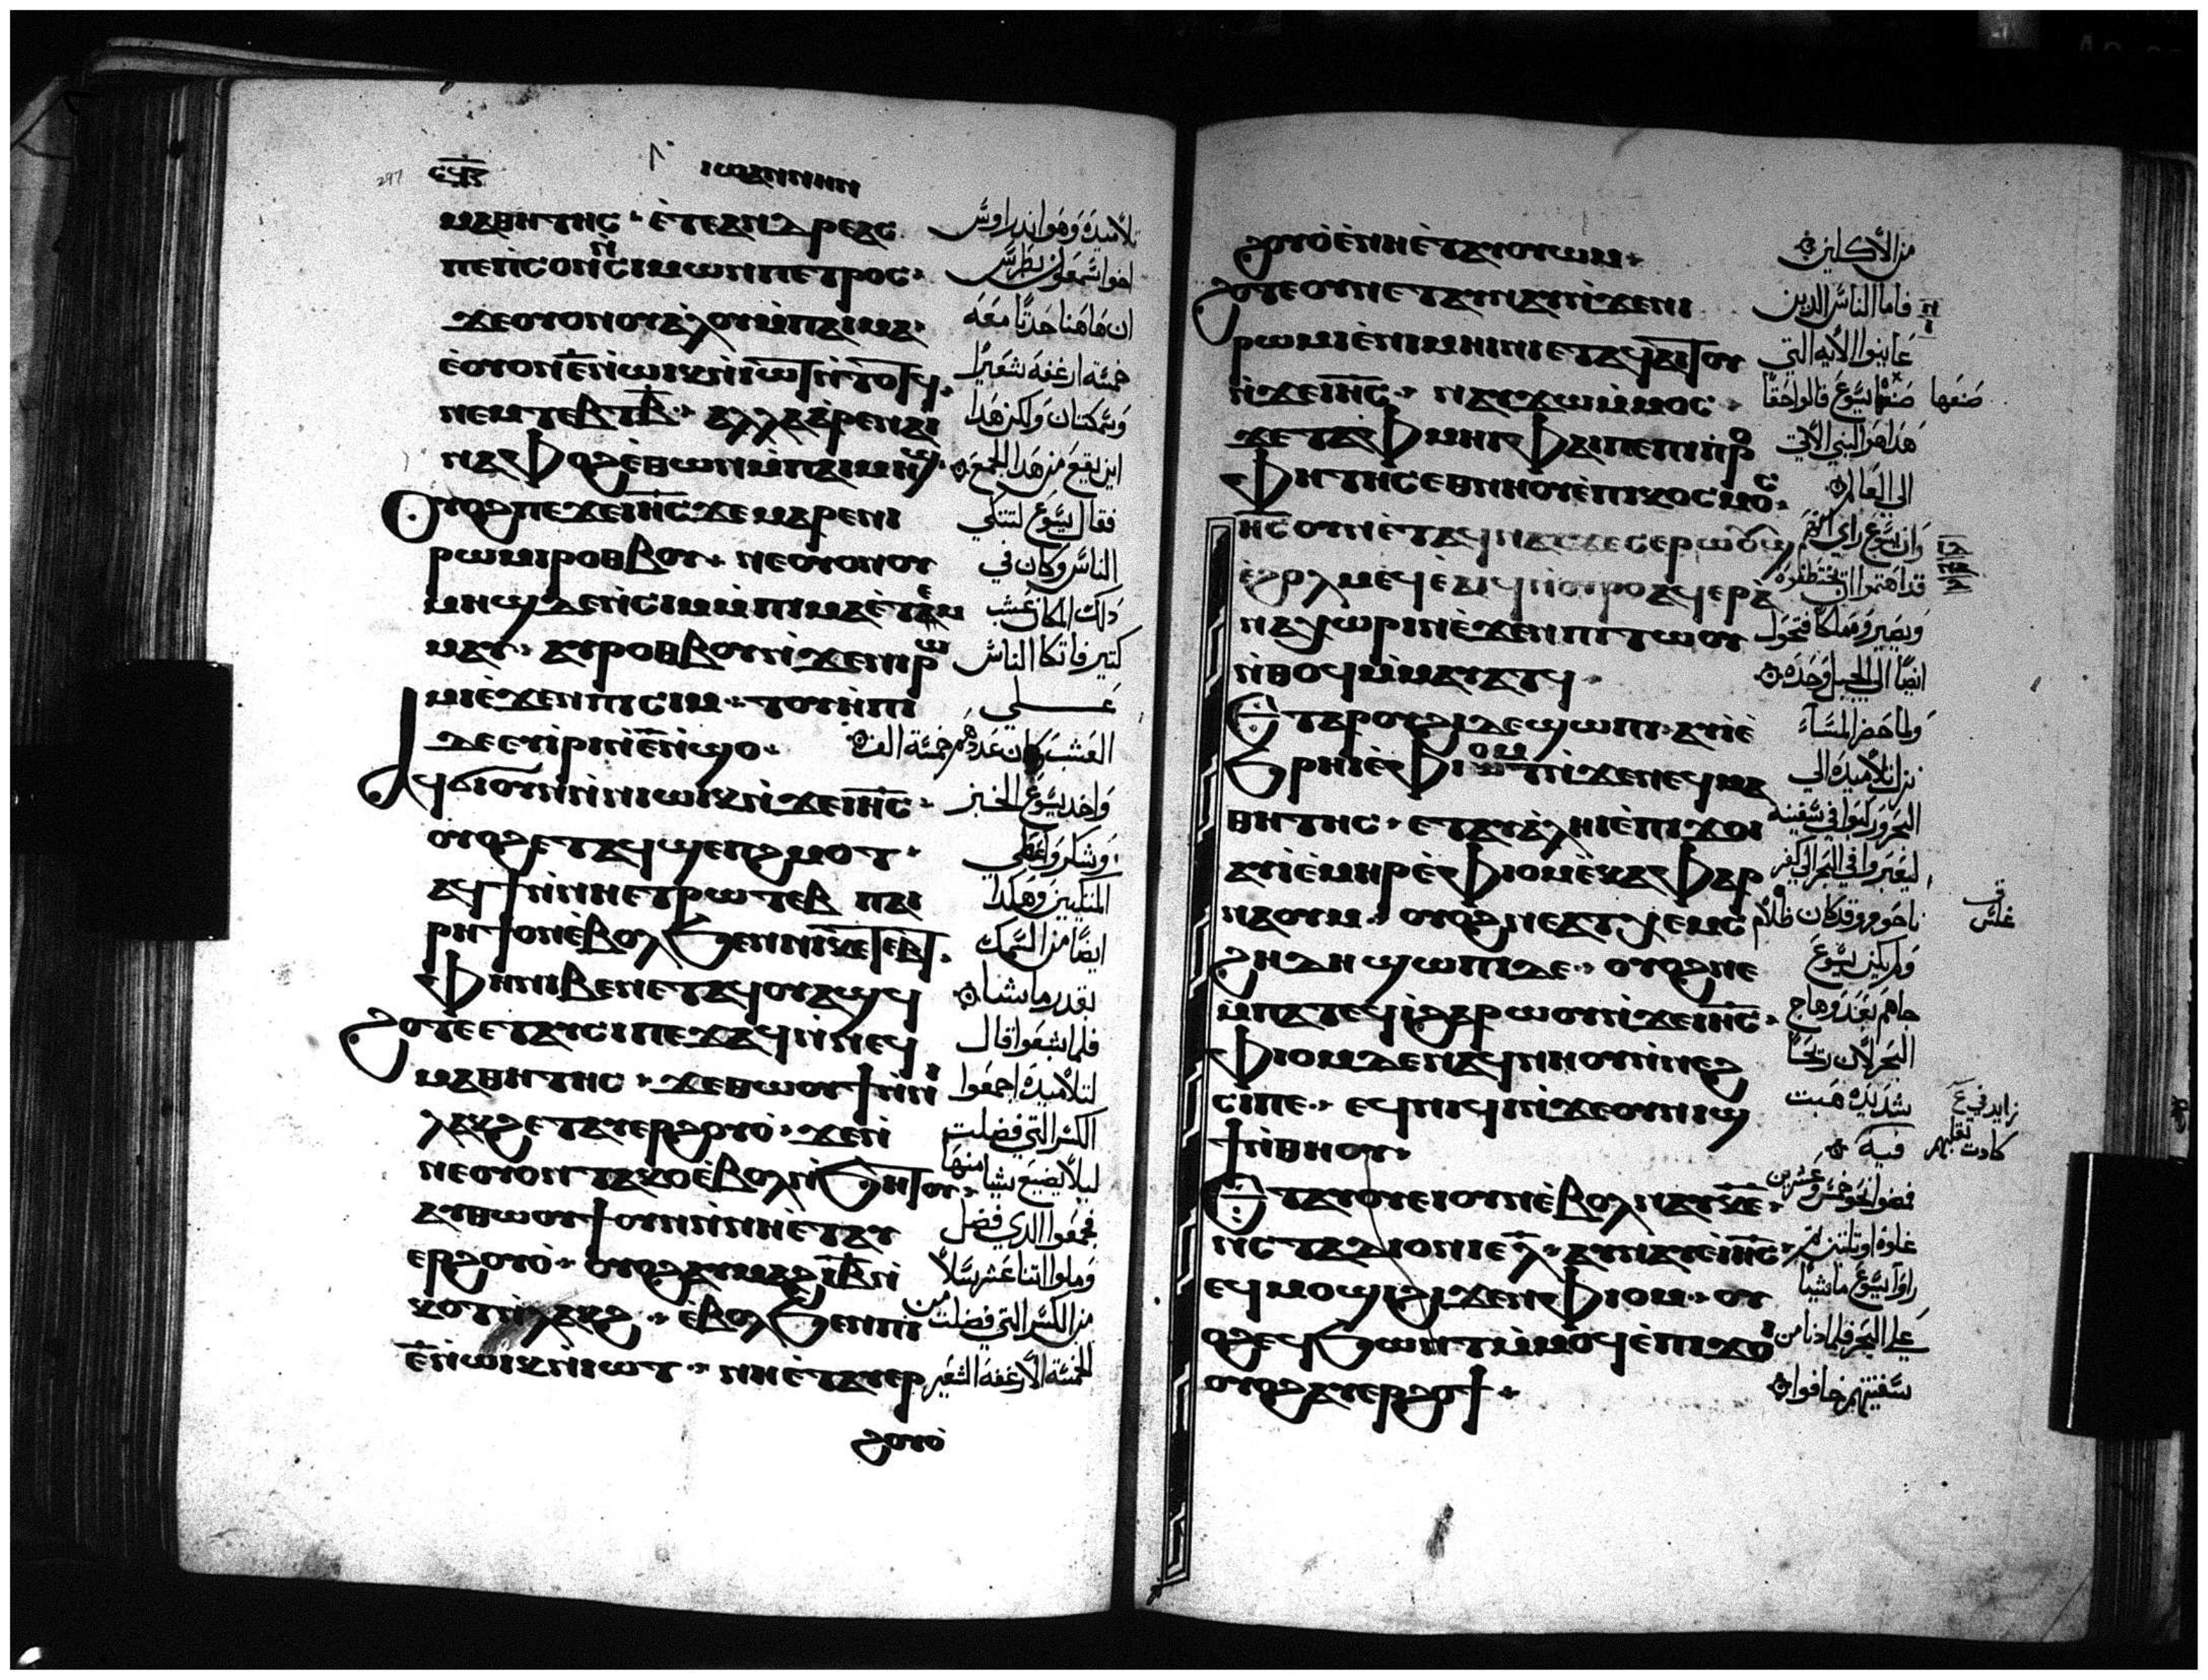 297 ⲥϥⲍ ⲓⲱⲁⲛⲛⲏⲛ
ⲙⲁⲑⲏⲧⲏⲥ · ⲉ̀ⲧⲉⲁⲛⲇⲣⲉⲁⲥ تلاميده وهو اندراوس
ⲡⲉⲡ̀ⲥⲟⲛⲛ̀ⲥⲓⲙⲱⲛⲡⲉⲧⲣⲟⲥ · اخوا شمعون بطرس
ϫⲉⲟⲩⲟⲛⲟⲩⲁ̀ⲗⲟⲩⲙ̀ⲡⲁⲓⲙⲁ · ان هاهنا حدثا معه
ⲉ̀ⲟⲩⲟⲛⲉ̅ⲛ̀ⲱⲓⲕⲛ̀ⲓⲱⲧⲛ̀ⲧⲟⲧϥ · خمسة ارغفه شعيرا
ⲛⲉⲙⲧⲉⲃⲧⲃ̅ · ⲁⲗⲗⲁⲁ̀ⲣⲉⲛⲁⲓ وسمكتان ولكن هدا
ⲛⲁⲫⲟϩⲉ̀ⲑⲱⲛⲙ̀ⲡⲁⲓⲙⲏϣ · اين يقع من هدا الجمع
ⲟⲩⲟϩⲡⲉϫⲉⲓⲏ̅ⲥ̅ϫⲉⲙⲁⲣⲉⲛⲓ فقال يسوع لتتكي
ⲣⲱⲙⲓⲣⲟⲑⲃⲟⲩ · ⲛⲉⲟⲩⲟⲛⲟⲩ الناس وكان في
ⲙⲏϣⲇⲉⲛ̀ⲥⲓⲙⲙ̀ⲡⲓⲙⲁⲉ̀ⲧⲉⲙ دلك المكان عشب
ⲙⲁⲩ · ⲁⲩⲣⲟⲑⲃⲟⲩⲛ̀ϫⲉⲛⲓⲣⲱ كتير فاتكا الناس
ⲙⲓⲉ̀ϫⲉⲛⲡⲓⲥⲓⲙ · ⲧⲟⲩⲏ̀ⲡⲓ علي
ⲇⲉⲉⲩⲓ̀ⲣⲓⲛ̀ⲉ̅ⲛ̀ϣⲟ · العشب وكان عددهم خمسة الف
ⲁϥϭⲓⲟⲩⲛⲛ̀ⲛⲓⲱⲓⲕⲛ̀ϫⲉⲓⲏ̅ⲥ̅ · واخد يسوع الخبز
ⲟⲩⲟϩⲉⲧⲁϥϣⲉⲡϩⲙⲟⲧ · وشكر واعطي
ⲁϥϯⲛ̀ⲛⲏⲉⲧⲣⲱⲧⲉⲃ ⲡⲁⲓ المتكيين وهكدا
ⲣⲏϯⲟⲛⲉ̀ⲃⲟⲗϧⲉⲛⲛⲓⲕⲉⲧⲉⲃⲧ · ايضا من السمك
ⲫⲏⲛⲓⲃⲉⲛⲉⲧⲁϥⲟⲩⲁϣϥ بقدر ما يشا
ϩⲟⲧⲉⲉⲧⲁⲩⲥⲓⲡⲉϫⲁϥⲛ̀ⲛⲉϥ فلما شبعوا قال
ⲙⲁⲑⲏⲧⲏⲥ · ϫⲉⲑⲱⲟⲩϯⲛ̀ⲛⲓ لتلاميده اجمعوا
ⲗⲁⲕϩⲉⲧⲁⲩⲉⲣϩⲟⲩⲟ̀ · ϫⲉⲛ̀ الكسر التي فضلت
ⲛⲉⲟⲩⲟⲛⲧⲁⲕⲟⲉ̀ⲃⲟⲗⲛ̀ϧⲏⲧⲟⲩ · ليلا يضيع شيا منها
ⲁⲩⲑⲱⲟⲩϯⲟⲩⲛⲛ̀ⲛⲏⲉ̀ⲧⲁⲩ فجمعوا الدي فضل
ⲉⲣϩⲟⲩⲟ̀ · ⲟⲩⲟϩⲁⲩⲙⲁϩⲓ̅ⲃ̅ⲛ̀ وملوا اتنا عشر سلا
ⲕⲟⲧⲛ̀ⲗⲁⲕϩ · ⲉⲃⲟⲗϧⲉⲛⲡⲓ من الكسر التي فضلت من
ⲉ̅ⲛ̀ⲱⲓⲕⲛ̀ⲓⲱⲧ · ⲛⲏⲉ̀ⲧⲁⲩⲉⲣ الخمسة الارغفه الشعير
ϩⲟⲩⲟ̀
ϩⲟⲩⲟ̀ⲉ̀ⲛⲏⲉ̀ⲧⲁⲩⲟⲩⲱⲙ · من الاكلين
ϩⲟⲧⲉⲟⲩⲛⲉⲧⲁⲩⲛⲁⲩⲛ̀ϫⲉⲛⲓ فاما الناس الدين
ⲣⲱⲙⲓⲉ̀ⲛⲓⲙⲏⲓⲛⲓⲉⲧⲁϥⲁⲓⲧⲟⲩ عاينوا الايه التي
ⲛ̀ϫⲉⲓⲏ̅ⲥ̅ · ⲛⲁⲩϫⲱⲙ̀ⲙⲟⲥ · صنعها يسوع قالوا حقا صنعها
ϫⲉⲧⲁⲫⲙⲏⲓⲫⲁⲓⲡⲉⲡⲓⲡⲣⲟ هدا هو النبي الاتي
ⲫⲏⲧⲏⲥⲉⲑⲛⲏⲟⲩⲉ̀ⲡⲓⲕⲟⲥⲙⲟⲥ · الى العالم
ⲓⲏ̅ⲥ̅ⲟⲩⲛⲉ̀ⲧⲁϥⲛⲁⲩϫⲉⲥⲉⲣⲱⲟⲩϣ وان يسوع راي انهم
ⲉ̀ϩⲟⲗⲙⲉϥⲉ̀ⲁⲓϥⲛ̀ⲟⲩⲣⲟⲁϥⲉⲣⲁ̀ قد اهتموا ان يختطفوه
ⲛⲁⲭⲱⲣⲓⲛⲉ̀ϫⲉⲛⲡⲓⲧⲱⲟⲩ ويصيروه ملكا فتحول
ⲛ̀ⲑⲟϥⲙ̀ⲙⲁⲩⲁⲧϥ · ايضا الي الجبل وحده
ⲉⲧⲁⲣⲟⲩϩⲓⲇⲉϣⲱⲡⲓ · ⲁⲩⲓ̀ⲉ̀ ولما حضر المساء
ϧⲣⲏⲓⲉ̀ⲫⲓⲟⲙⲛ̀ϫⲉⲛⲉϥⲙⲁ نزل تلاميده الي
ⲑⲏⲧⲏⲥ · ⲉⲧⲁⲩⲁ̀ⲗⲏⲓⲉ̀ⲡⲓϫⲟⲓ البحر وركبوا في سفينه
ⲁⲩⲓ̀ⲉ̀ⲙⲏⲣⲉ̀ⲫⲓⲟⲙⲉ̀ⲕⲁⲫⲁⲣ ليعبروا في البحر الي كفر
ⲛⲁⲟⲩⲙ · ⲟⲩⲟϩⲛⲉⲁⲧⲭⲉⲙⲥ ناحوم وقد كان ظلام غلس
ϩⲏⲇⲏϣⲱⲡⲓⲇⲉ · ⲟⲩⲟϩⲛⲉ ولم يكن يسوع
ⲙ̀ⲡⲁⲧⲉϥⲓ̀ϩⲁⲣⲱⲟⲩⲛ̀ϫⲉⲓⲏ̅ⲥ̅ · جاهم بعد وهاج
ⲫⲓⲟⲙⲇⲉⲛⲁϥⲛⲏⲟⲩⲛ̀ⲛⲉϩ البحر لان ريحا
ⲥⲓⲡⲉ · ⲉϥⲛⲓϥⲓⲛ̀ϫⲉⲟⲩⲛⲓϣ شديده هبت زايد في ع
ϯⲛ̀ⲑⲏⲟⲩ · فيه كادت تقلبهم
ⲉⲧⲁⲩⲟⲩⲉⲓⲟⲩⲛⲉ̀ⲃⲟⲗⲛⲁⲩⲕ̅ⲉ̅ · فمضوا نحو خمس وعشرين
ⲛ̀ⲥⲧⲁⲇⲓⲟⲛⲓⲉⲗ̅ · ⲁⲩⲛⲁⲩⲉ̀ⲓⲏ̅ⲥ̅ · غلوه او تلتين تم
ⲉϥⲙⲟϣⲓϩⲓϫⲉⲛⲫⲓⲟⲙ · ⲟⲩ راوا يسوع ماشيا
ⲟϩⲉϥϧⲱⲛⲧⲙ̀ⲙⲟϥⲉ̀ⲡⲓϫⲟⲓ علي البحر فلما دنا من
ⲟⲩⲟϩⲁⲩⲉⲣϩⲟϯ · سفينتهم خافوا